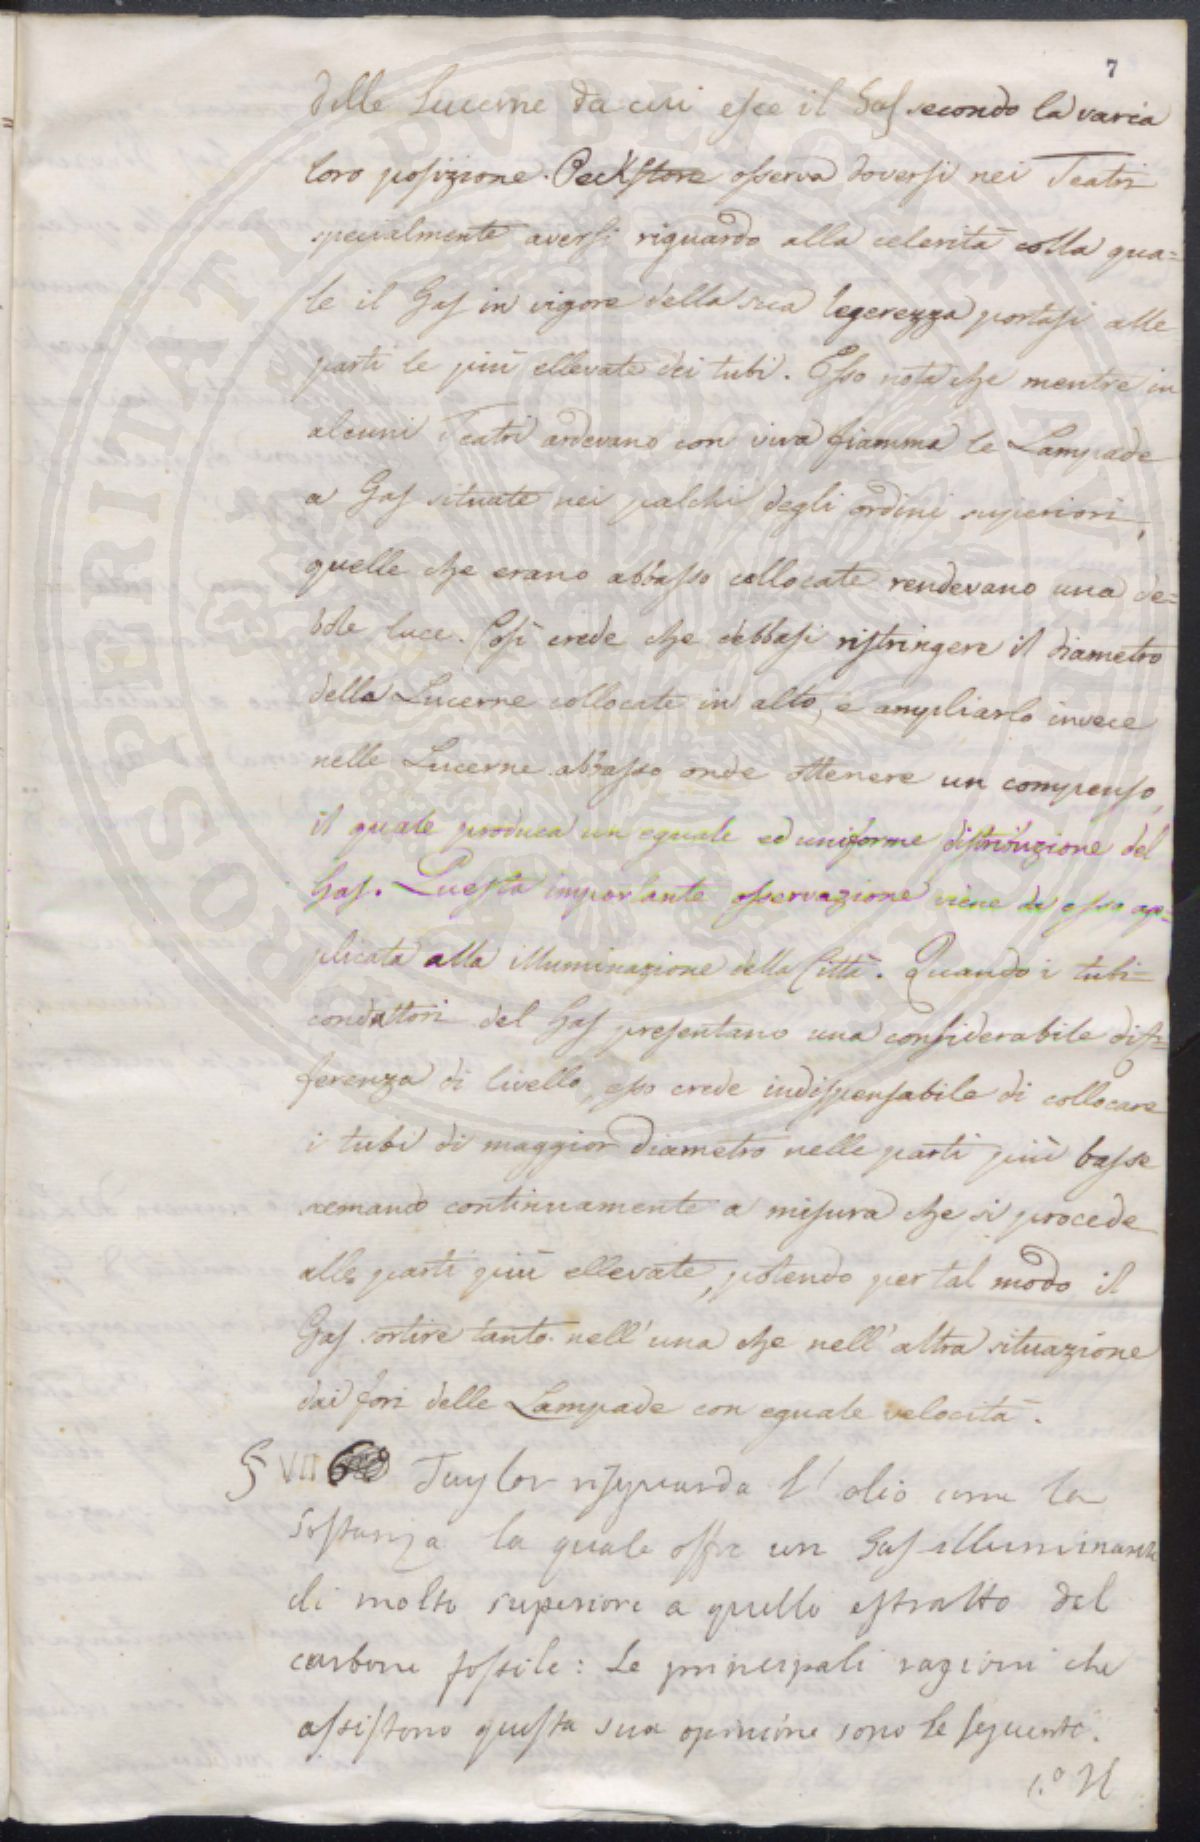 7
delle Lucerne da cui esce il Gas secondo la varia
loro posizione. Peckstone osserva doversi nei Teatri
specialmente aversi riguardo alla celerità colla qua=
le il Gas in vigore della sua legerezza portasi alle
parti le più ellevate dei tubi. Esso nota che mentre in
alcuni Teatri ardevano con viva fiamma le Lampade
a Gas situate nei palchi degli ordini superiori,
quelle che erano abbasso collocate rendevano una de=
bole luce. Così crede che debbasi ristringere il diametro
della Lucerne collocate in alto, e ampliarlo invece
nelle Lucerne abbasso onde ottenere un compenso,
il quale produca un eguale ed uniforme distribuzione del
Gas. Questa importante osservazione viene da esso ap=
plicata alla illuminazione della Città. Quando i tubi
conduttori del Gas presentano una considerabile dif=
ferenza di livello, esso crede indispensabile di collocare
i tubi di maggior diametro nelle parti più basse
scemando continuamente a misura che si procede
alle parti più ellevate, potendo per tal modo il
Gas sortire tanto nell'una che nell'altra situazione
dai fori delle Lampade con eguale velocità.
§ VII Taylor risguarda l'olio come la
sostanza la quale offre un Gas illuminante
di molto superiore a quello estratto dal
carbone fossile: Le principali ragioni che
assistono questa sua opinione sono le seguenti.
1.° Il